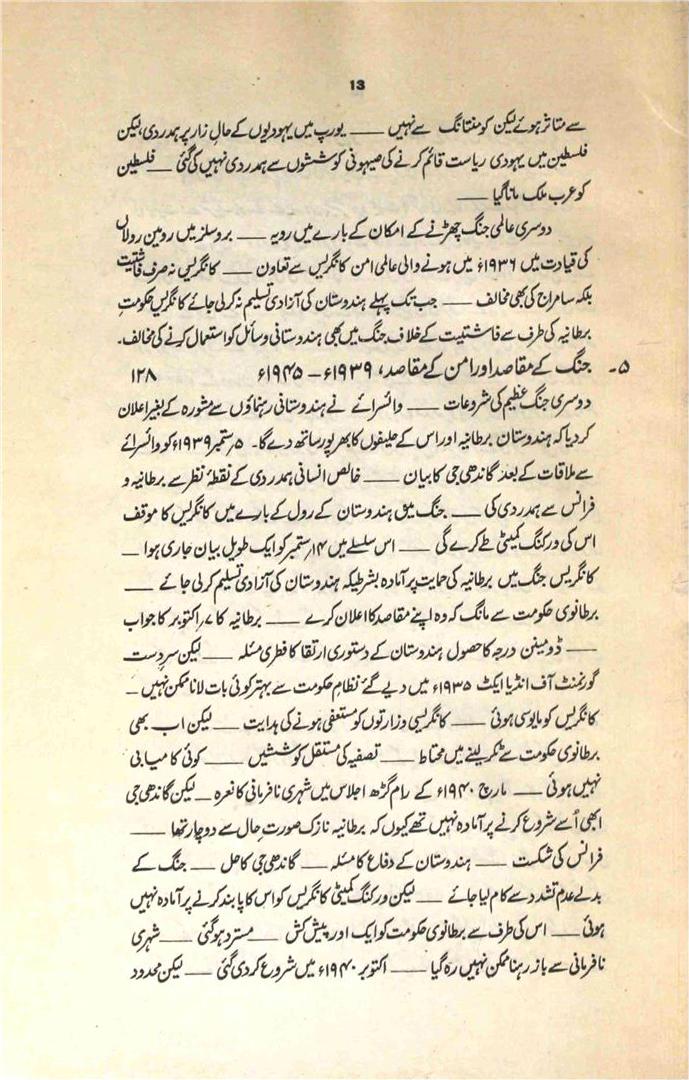 13
سے متاثر ہوئے لیکن کومنتانگ سے نہیں ــــ یورپ میں یہودیوں کے حالِ زار پر ہمدردی، لیکن
فلسطین میں یہودی ریاست قائم کرنے کی صیہونی کوششوں سے ہمدردی نہیں کی گئی ــــ فلسطین
کو عرب ملک مانا گیا ــــ
دوسری عالمی جنگ چھڑنے کے امکان کے بارے میں رویہ ــــ بروسلز میں رومین رولاں
کی قیادت میں ۱۹۳۶ء میں ہونے والی عالمی امن کانگریس سے تعاون ــــ کانگریس نہ صرف فاشتیت
بلکہ سامراج کی بھی مخالف ــــ جب تک پہلے ہندوستان کی آزادی تسلیم نہ کرلی جائے کانگریس حکومتِ
برطانیہ کی طرف سے فاشتیت کے خلاف جنگ میں بھی ہندوستانی وسائل کو استعمال کرنے کی مخالف۔
۵۔ جنگ کے مقاصد اور امن کے مقاصد، ۱۹۳۹ء – ۱۹۴۵ء ۱۲۸
دوسری جنگِ عظیم کی شروعات ــــ وائسرائے نے ہندوستانی رہنماؤں سے مشورہ کے بغیر اعلان
کردیا کہ ہندوستان برطانیہ اور اس کے حلیفوں کا بھرپور ساتھ دے گا۔ ۵؍ستمبر ۱۹۳۹ء کو وائسرائے
سے ملاقات کے بعد گاندھی جی کا بیان ــــ خالص انسانی ہمدردی کے نقطۂ نظر سے برطانیہ و
فرانس سے ہمدردی کی ــــ جنگ میق ہندوستان کے رول کے بارے میں کانگریس کا موقف
اس کی ورکنگ کمیٹی طے کرے گی ــــ اس سلسلے میں ۱۴؍ستمبر کو ایک طویل بیان جاری ہوا ــــ
کانگریس جنگ میں برطانیہ کی حمایت پر آمادہ بشرطیکہ ہندوستان کی آزادی تسلیم کرلی جائے ــــ
برطانوی حکومت سے مانگ کہ وہ اپنے مقاصد کا اعلان کرے ــــ برطانیہ کا ۷؍اکتوبر کا جواب
ــــ ڈومینن درجہ کا حصول ہندوستان کے دستوری ارتقا کا فطری مسئلہ ــــ لیکن سرِدست
گورنمنٹ آف انڈیا ایکٹ ۱۹۳۵ء میں دیے گئے نظامِ حکومت سے بہتر کوئی بات لانا ممکن نہیں ــــ
کانگریس کو مایوسی ہوئی ــــ کانگریسی وزارتوں کو مستعفی ہونے کی ہدایت ــــ لیکن اب بھی
برطانوی حکومت سے ٹکر لینے میں محتاط ــــ تصفیہ کی مستقل کوششیں ــــ کوئی کامیابی
نہیں ہوئی ــــ مارچ ۱۹۴۰ء کے رام گڑھ اجلاس میں شہری نافرمانی کا نعرہ ــــ لیکن گاندھی جی
ابھی اُسے شروع کرنے پر آمادہ نہیں تھے کیوں کہ برطانیہ نازک صورتِ حال سے دوچار تھا ــــ
فرانس کی شکست ــــ ہندوستان کے دفاع کا مسئلہ ــــ گاندھی جی کا حل ــــ جنگ کے
بدلے عدم تشدد سے کام لیا جائے ــــ لیکن ورکنگ کمیٹی کانگریس کو اس کا پابند کرنے پر آمادہ نہیں
ہوئی ــــ اس کی طرف سے برطانوی حکومت کو ایک اور پیش کش ــــ مسترد ہوگئی ــــ شہری
نافرمانی سے باز رہنا ممکن نہیں رہ گیا ــــ اکتوبر ۱۹۴۰ء میں شروع کردی گئی ــــ لیکن محدود